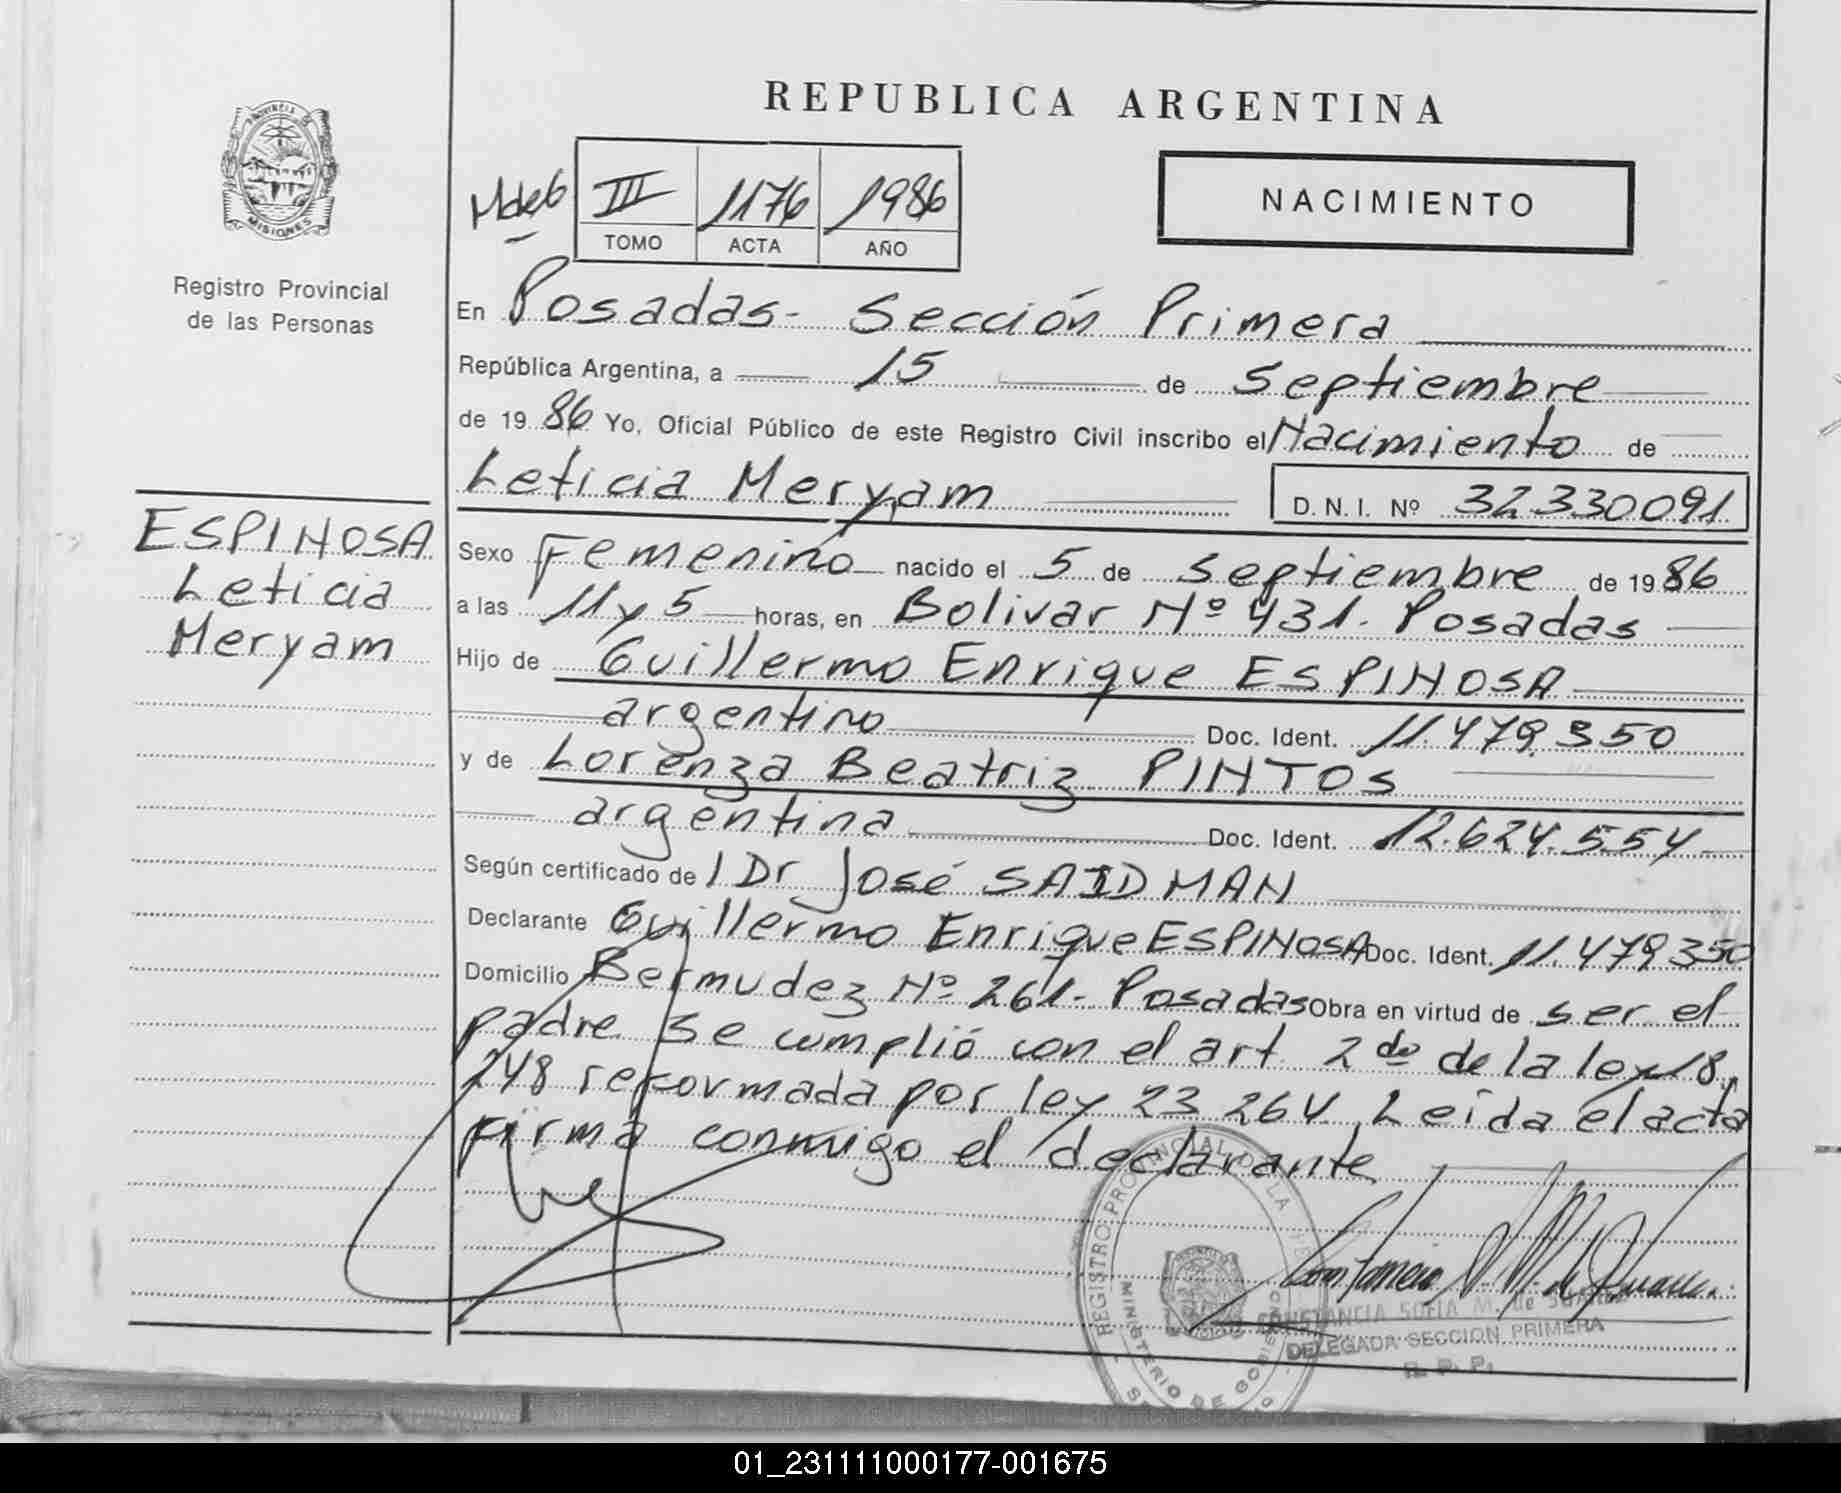 REPUBLICA ARGENTINA
PROVINCIA DE
MISIONES
Registro Provincial
de las Personas
III 1176 1986
TOMO ACTA AÑO
NACIMIENTO
En Posadas- Sección Primera
República Argentina, a 15 de Septiembre
de 19 86 Yo, Oficial Público de este Registro Civil inscribo el Nacimiento de
Leticia Meryam D. N. I. Nº 32.330091
ESPINOSA
Leticia
Meryam
Sexo Femenino nacido el 5 de Septiembre de 19 86
a las 11 y 5 horas, en Bolivar Nº 431. Posadas
Hijo de Guillermo Enrique ESPINOSA
argentino Doc. Ident. 11.479.350
y de Lorenza Beatriz PINTOS
argentina Doc. Ident. 12.624.554
Según certificado de l Dr José SAIDMAN
Declarante Guillermo Enrique ESPINOSA Doc. Ident. 11.479350
Domicilio Bermudez Nº 261- Posadas Obra en virtud de ser el
padre se cumplió con el art 2do de la ley 18.
248 reformada por ley 23 264. Leída el acta
firma conmigo el declarante
REGISTRO PROVINCIAL DE LA
MINISTERIO DE GOBIERNO
CONSTANCIA SOFIA M. de
DELEGADA SECCION PRIMERA
R. P. P.
01_231111000177-001675